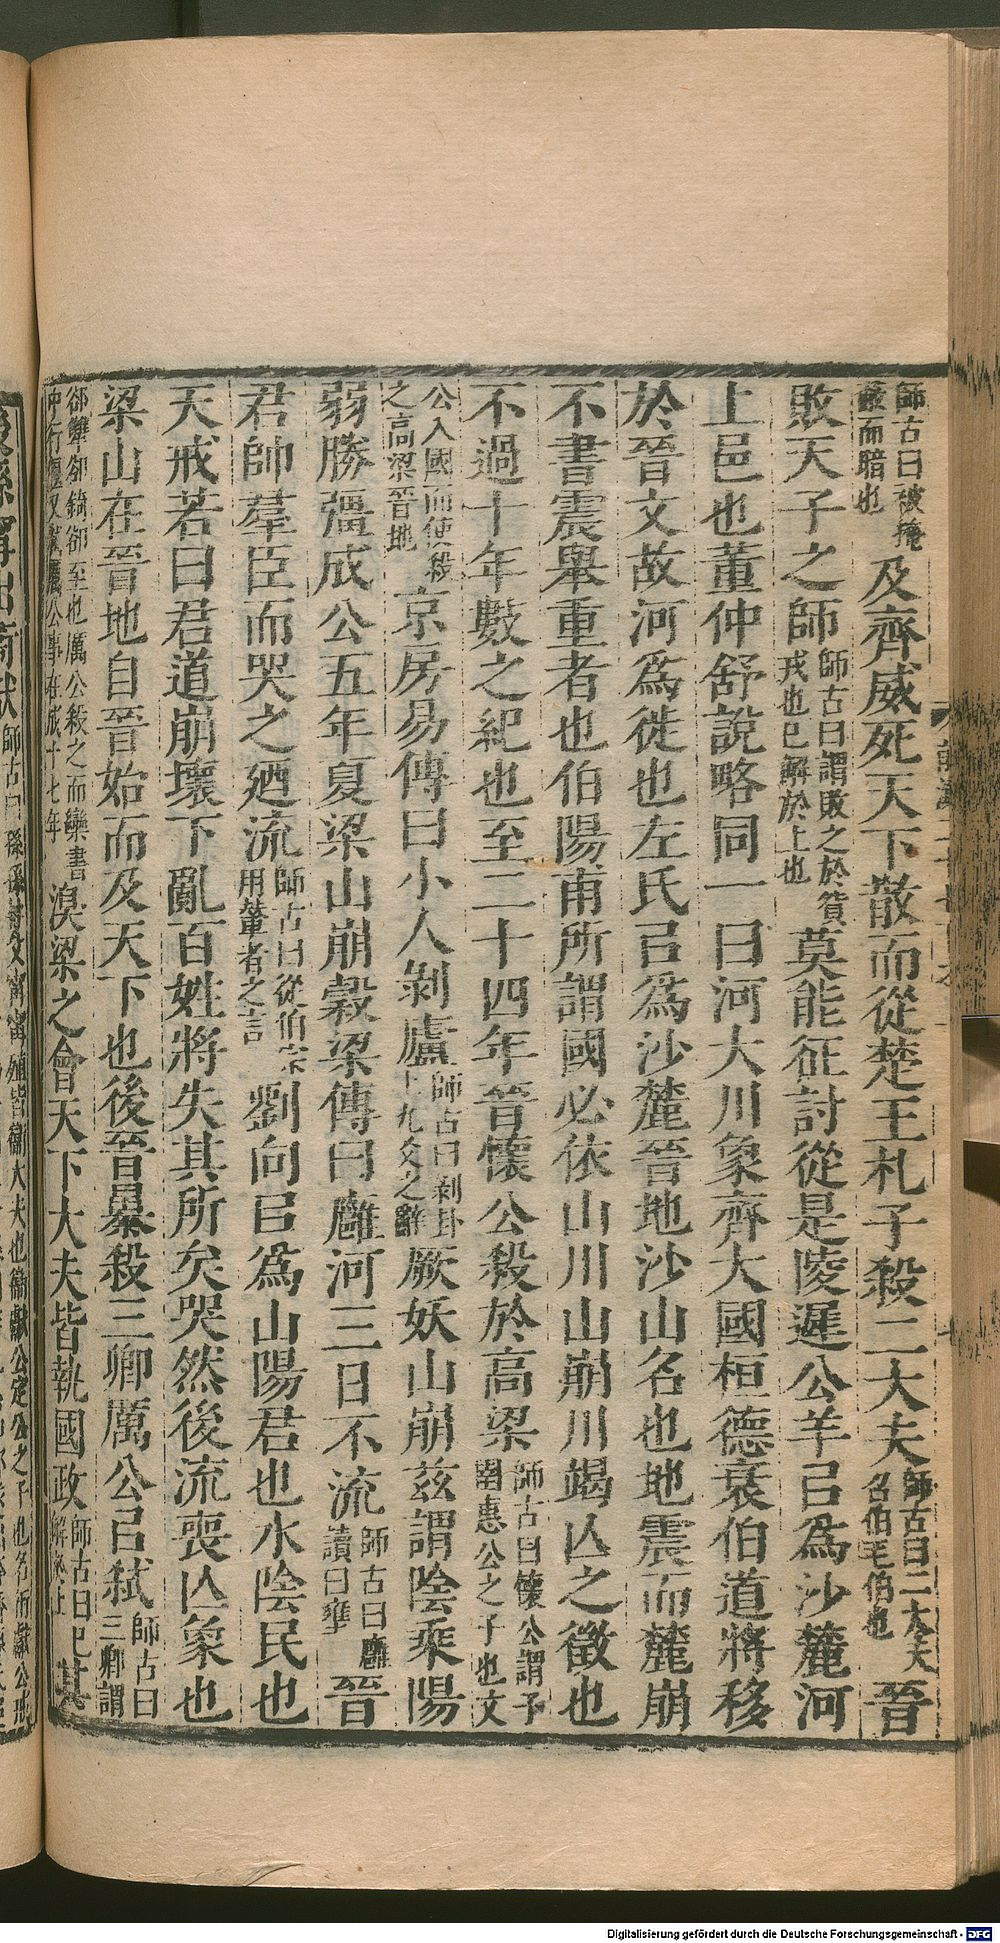 師古曰被掩蔽而暗也及齊威死天下散而從楚王札子殺二大夫師古曰二大夫召伯毛伯也晉
敗天子之師師古曰謂敗之於貿戎也已解於上也莫能征討從是陵遲公羊㠯爲沙麓河
上邑也董仲舒說略同一曰河大川象齊大國桓德衰伯道將移
於晉文故河爲徙也左氏㠯爲沙麓晉地沙山名也地震而麓崩
不書震舉重者也伯陽甫所謂國必依山川山崩川竭亾之徵也
不過十年數之紀也至二十四年晉懷公殺於高梁師古曰懷公謂子圉惠公之子也文
公入國而使殺之高梁晉地京房易傳曰小人剝廬師古曰剝卦上九爻之辭厥妖山崩茲謂陰乘陽
弱勝彊成公五年夏梁山崩穀梁傳曰廱河三日不流師古曰廱讀曰壅晉
君帥羣臣而哭之廼流師古曰從伯宗用輦者之言劉向㠯爲山陽君也水陰民也
天戒若曰君道崩壞下亂百姓將失其所矣哭然後流喪亾象也
梁山在晉地自晉始而及天下也後晉暴殺三卿厲公㠯弒師古曰三卿謂
郤犨郤錡郤至也厲公殺之而欒書中行偃又弒厲公事在成十七年溴梁之會天下大夫皆執國政師古曰已解於上其
後孫甯出衞獻師古曰孫孫林父甯甯殖皆衞大夫也衞獻公定公之子也名衎
Digitalisierung gefördert durch die Deutsche Forschungsgemeinschaft - DFG